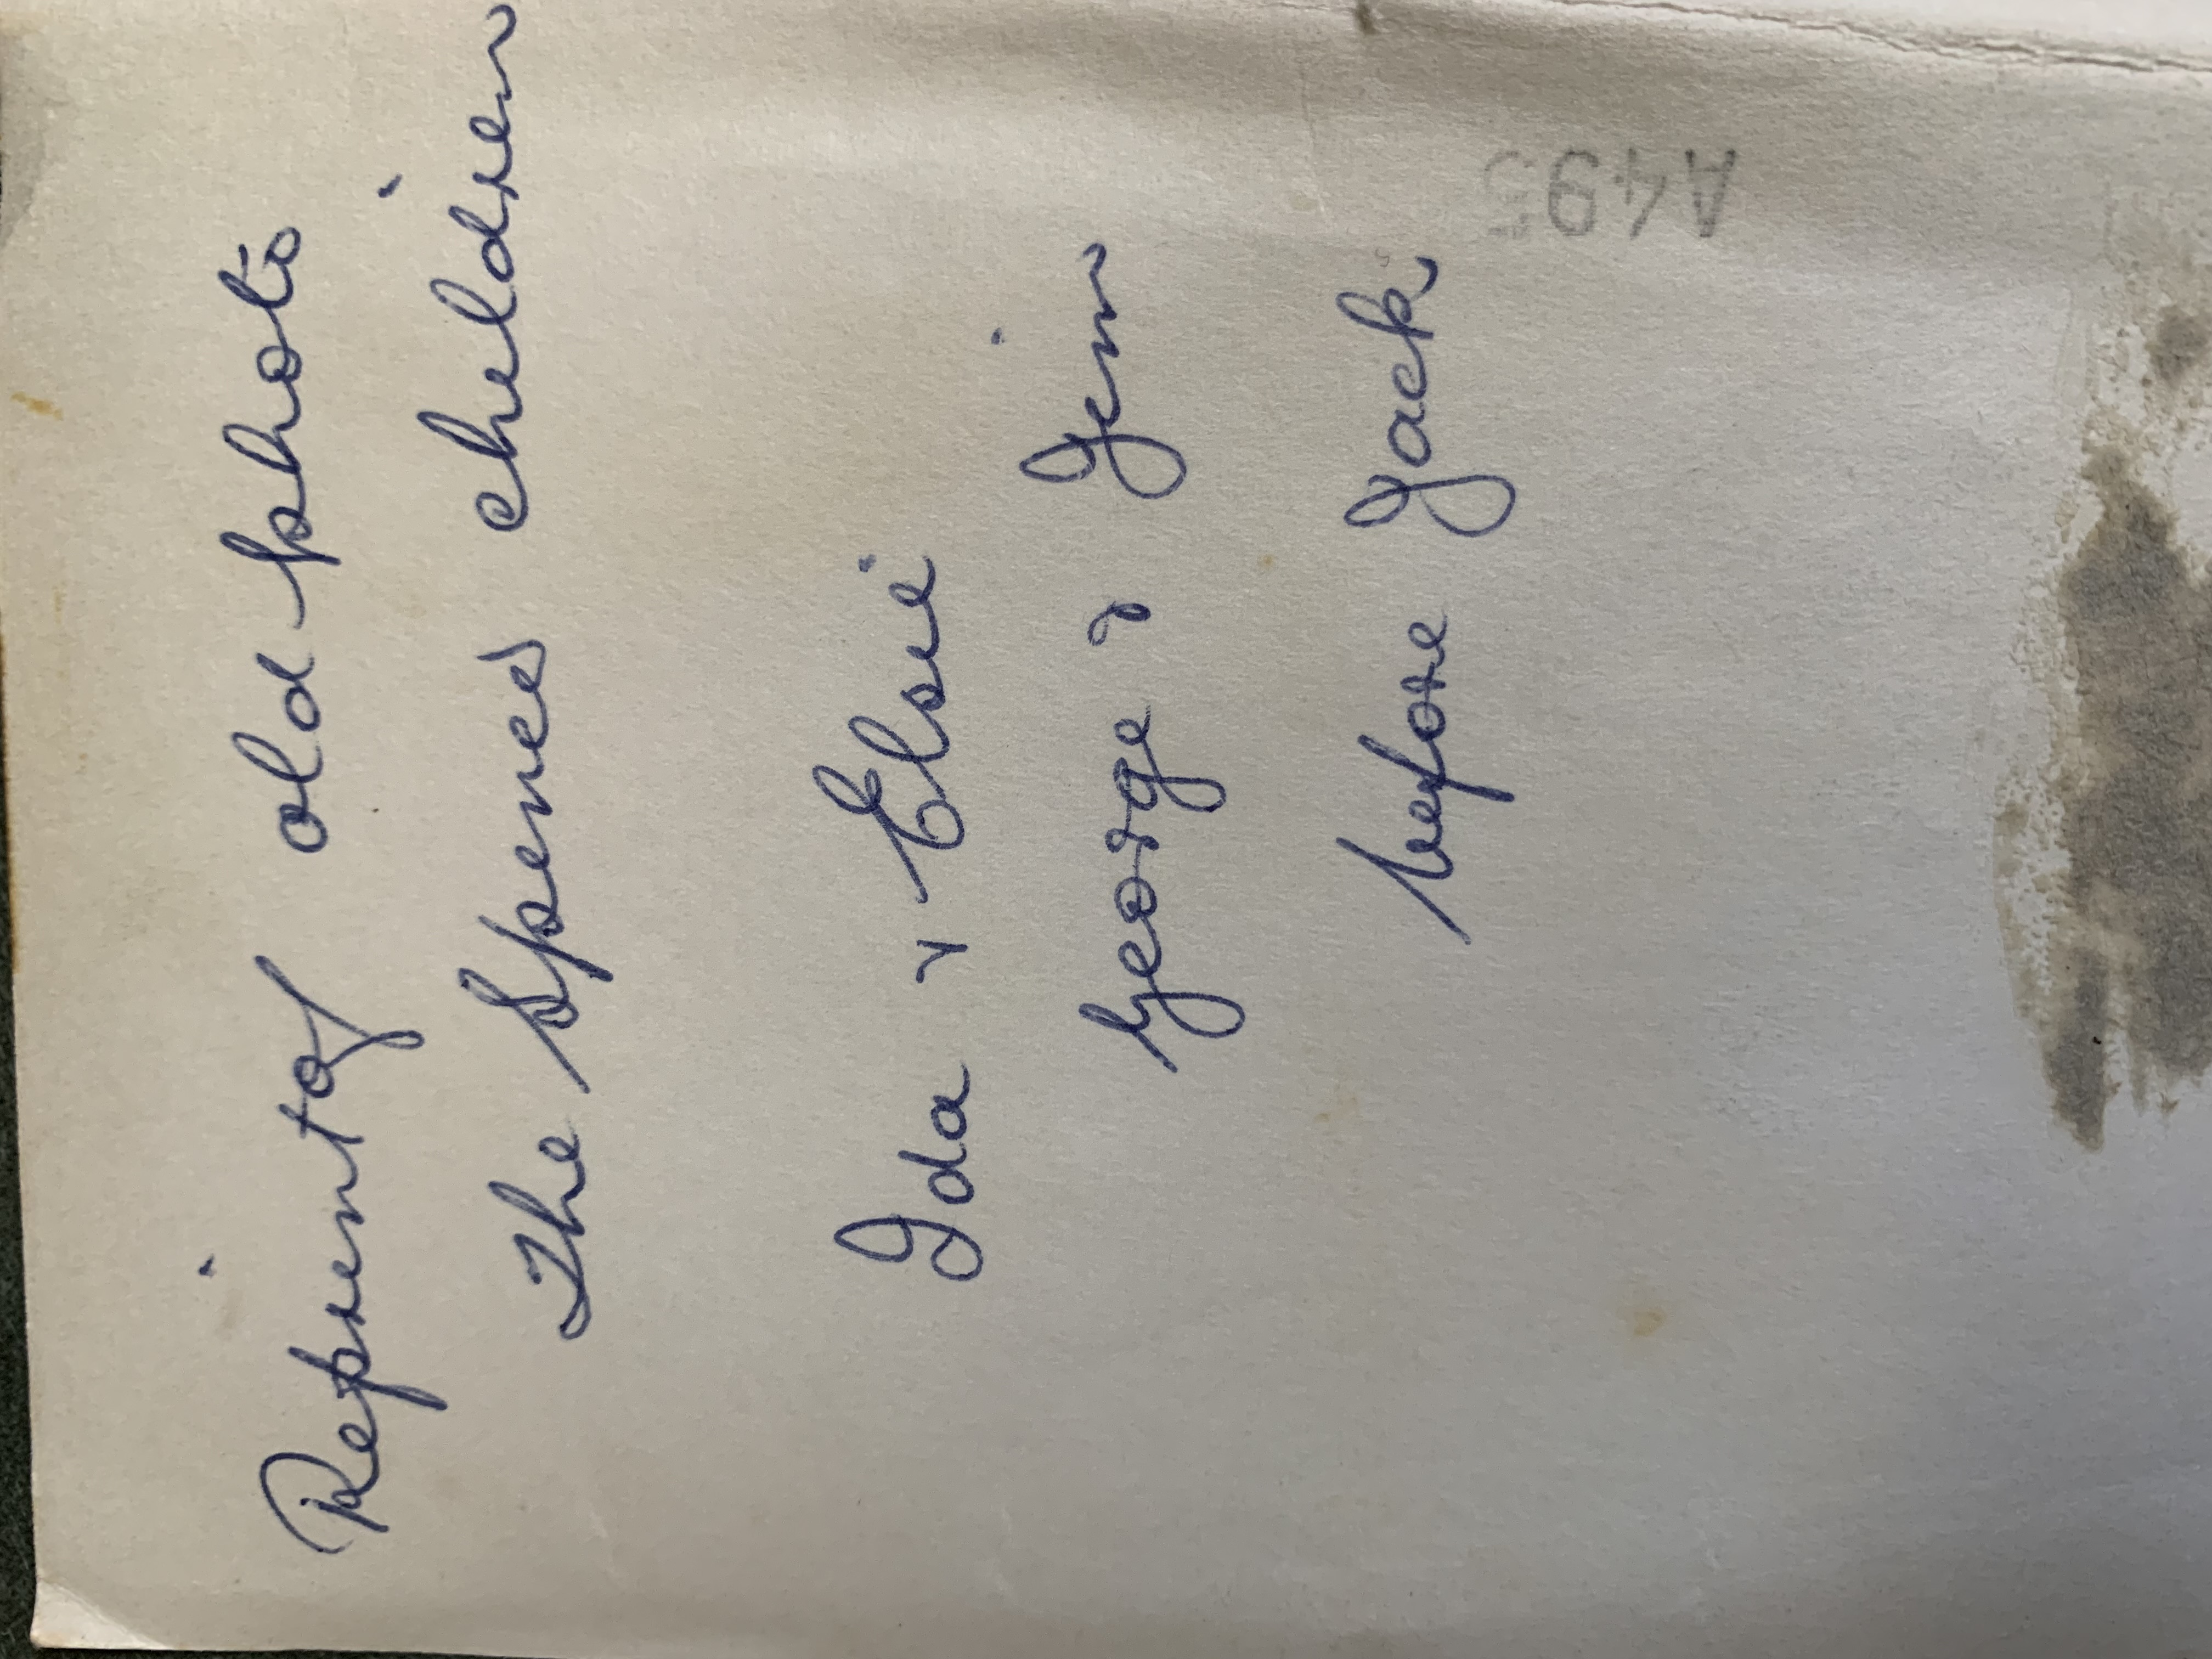 Reprint of old photo
The Spences children
Ida & Elsie
George & Jim
before Jack
A495